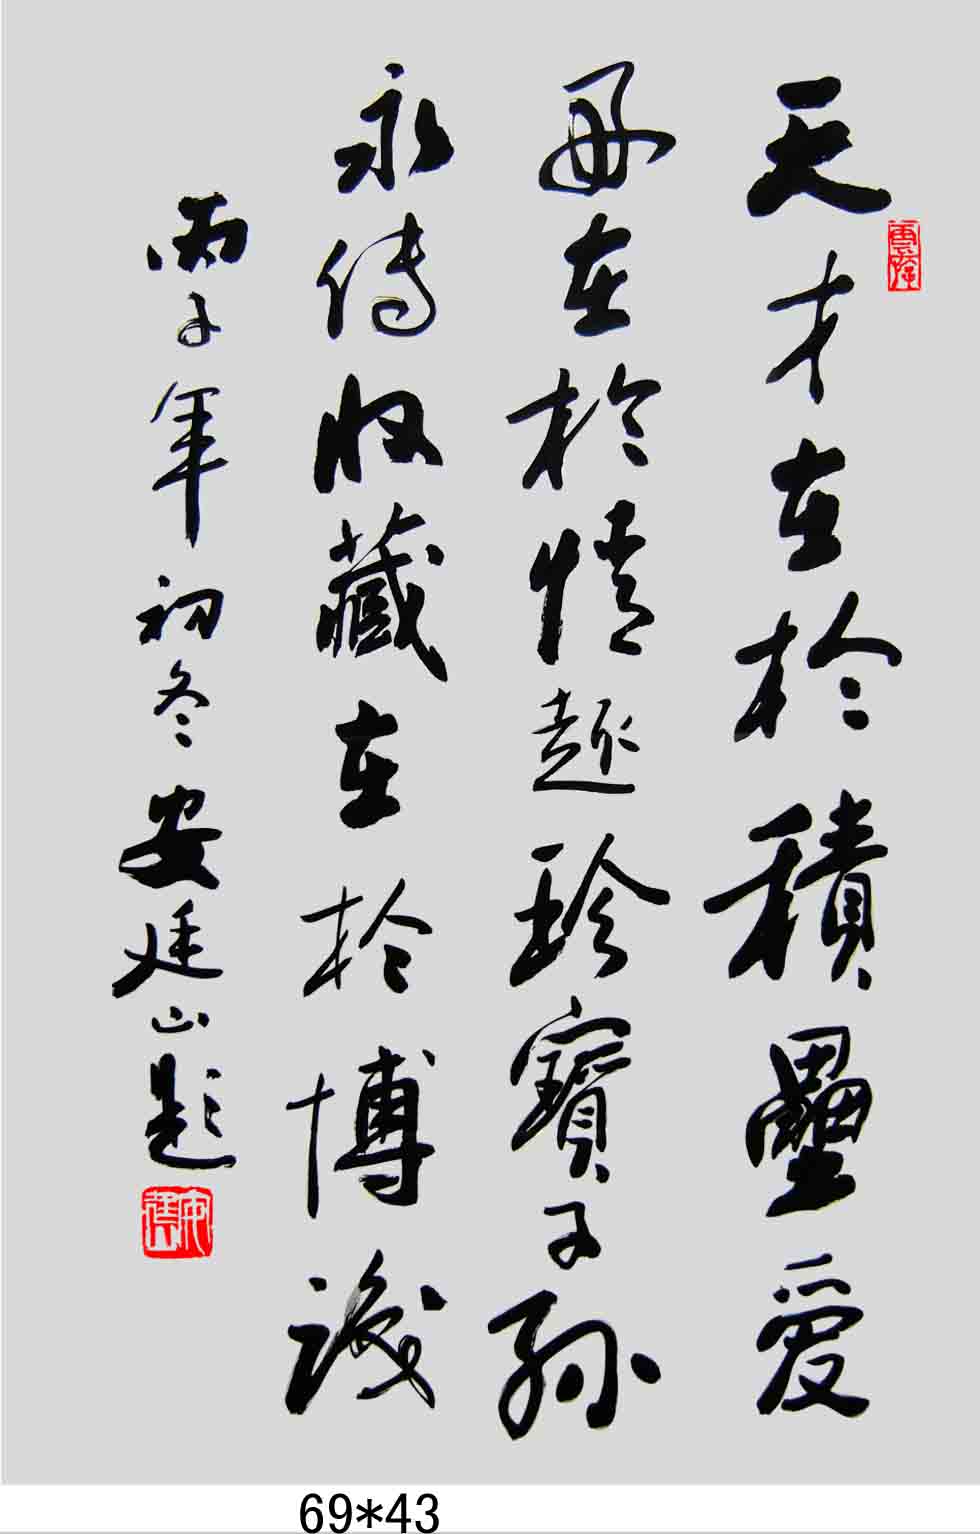 天才在於積壘愛
在於情趣珍寶子孫
永傳收藏在於博識
丙子年初冬安廷山題
69*43